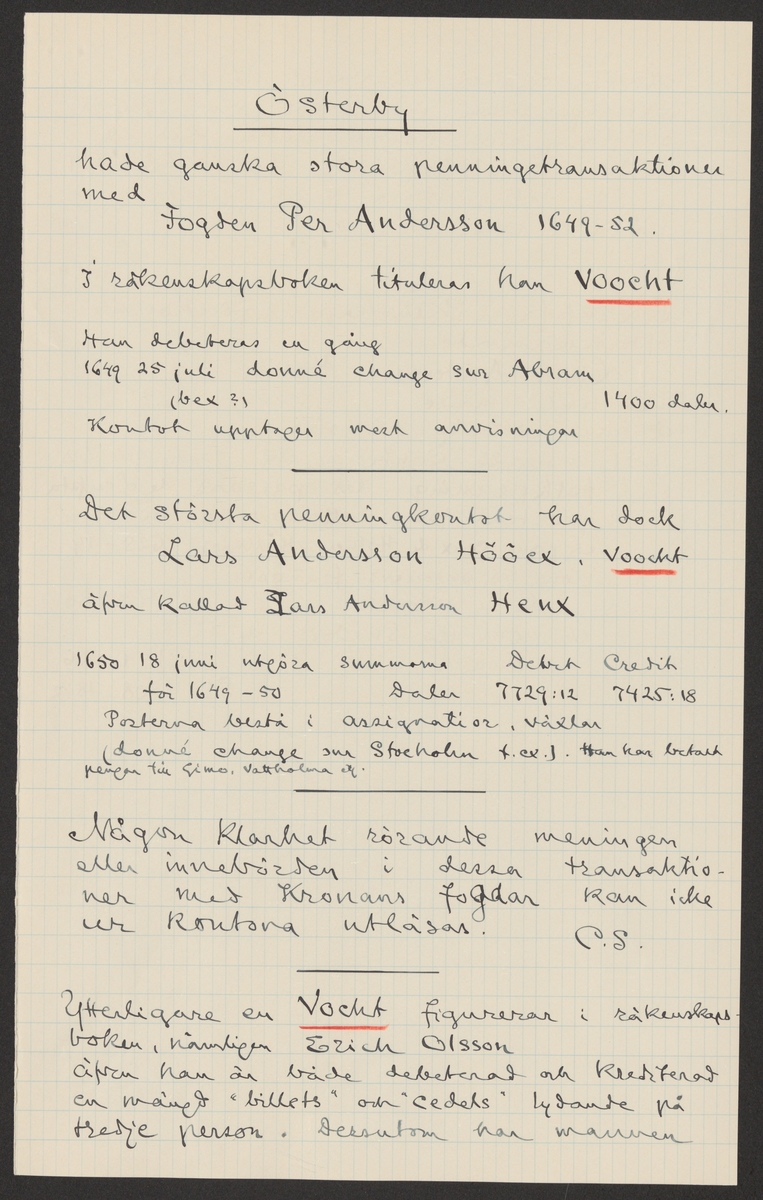 Österby
hade ganska stora penningetransaktioner
med
Fogden Per Andersson 1649-52.
I räkenskapsboken tituleras han Voocht
Han debeteras en gång
1649 25 juli donné change sur Abram
(bex ?) 1400 daler.
Kontot upptager mest anvisningar
Det största penningkontot har dock
Lars Andersson Hööex, Voocht
äfven kallad Lars Andersson Henx
1650 18 juni utgöra summorna Debet Credit
för 1649-50 Daler 7729:12 7425:18
Posterna bestå i assignatior, växlar
(donné change sur Stocholm t.ex.). Han har betalt
pengar till Gimo, Vattholma etc.
Någon klarhet rörande meningen
eller innebörden i dessa transaktio-
ner med Kronans fogdar kan icke
ur kontona utläsas.
C.S.
Ytterligare en Vocht figurerar i räkenskaps-
boken, nämligen Erich Olsson
äfven han är både debeterad och krediterad
en mängd "billets" och "cedels" lydande på
tredje person. Dessutom har mannen